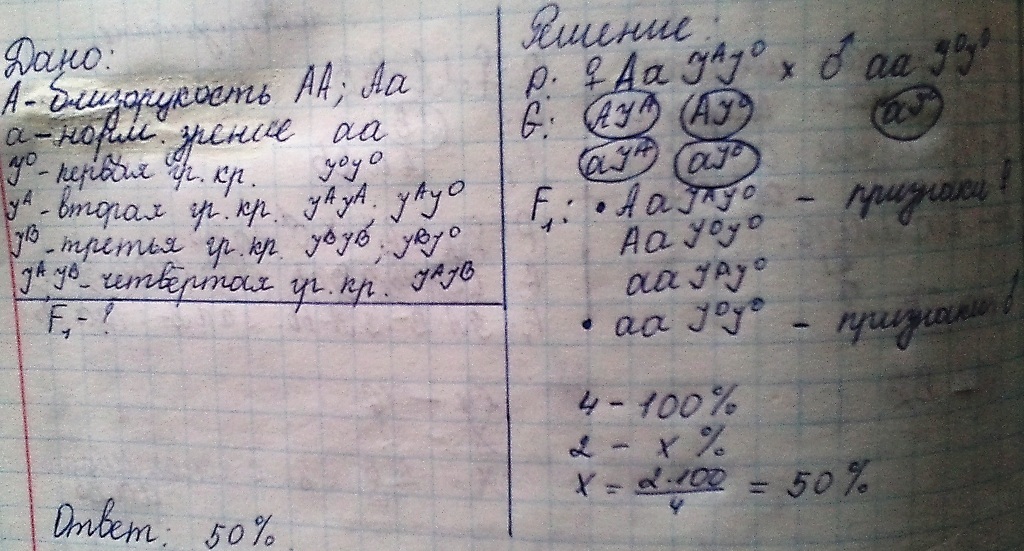 Дано:
А - близорукость АА; Аа
а - норм. зрение аа
J⁰ - первая гр. кр. J⁰J⁰
Jᴬ - вторая гр. кр. JᴬJᴬ; JᴬJ⁰
Jᴮ - третья гр. кр. JᴮJᴮ; JᴮJ⁰
Jᴬ, Jᴮ - четвёртая гр. кр. JᴬJᴮ
F₁ - ?
Ответ: 50%
Решение:
P: ♀ Aa JᴬJ⁰ × ♂ aa J⁰J⁰
G: AJᴬ AJ⁰ aJ⁰
aJᴬ aJ⁰
F₁: • Aa JᴬJ⁰ - признаки ♀
Aa J⁰J⁰
aa JᴬJ⁰
• aa J⁰J⁰ - признаки ♂
4 - 100%
2 - x %
x = 2·100/4 = 50%